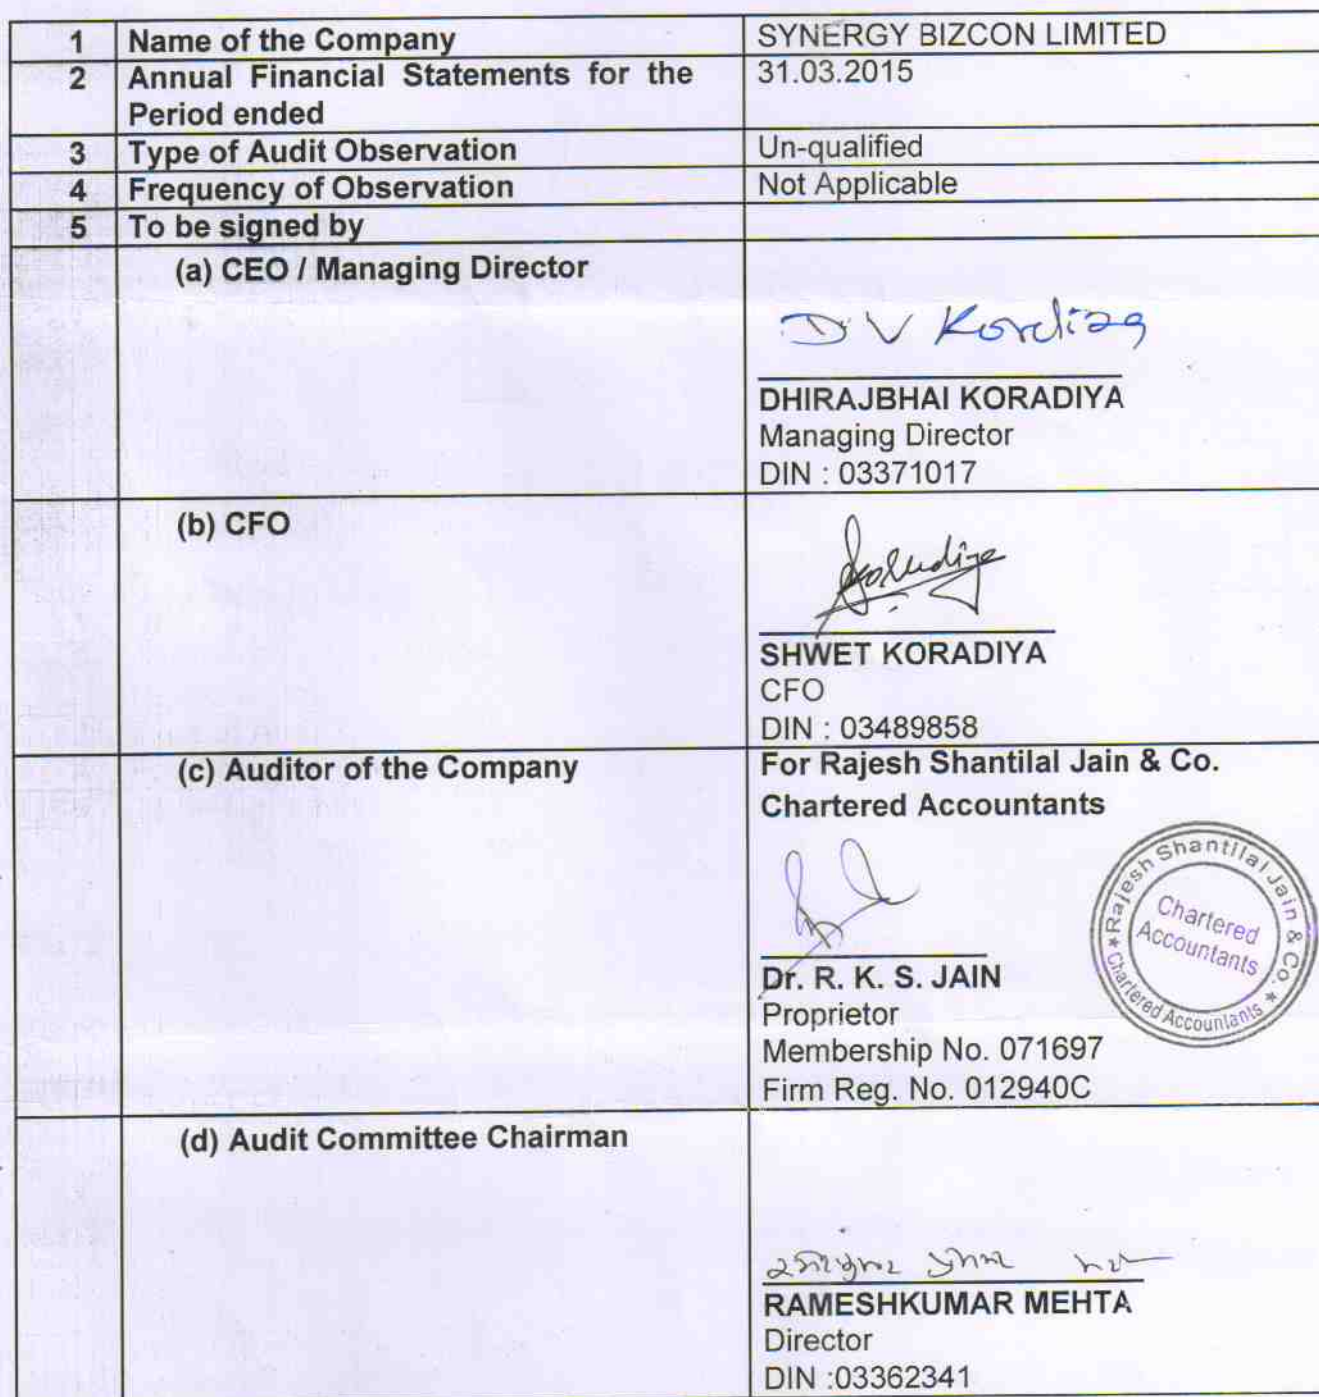 1 Name of the Company SYNERGY BIZCON LIMITED
2 Annual Financial Statements for the 31.03.2015
Period ended
3 Type of Audit Observation Un-qualified
4 Frequency of Observation Not Applicable
5 To be signed by
(a) CEO / Managing Director
D V Koradiya
DHIRAJBHAI KORADIYA
Managing Director
DIN : 03371017
(b) CFO
SHWET KORADIYA
CFO
DIN : 03489858
(c) Auditor of the Company For Rajesh Shantilal Jain & Co.
Chartered Accountants
Rajesh Shantilal Jain & Co.
Chartered
Accountants
★ Chartered Accountants ★
Dr. R. K. S. JAIN
Proprietor
Membership No. 071697
Firm Reg. No. 012940C
(d) Audit Committee Chairman
RAMESHKUMAR MEHTA
Director
DIN :03362341